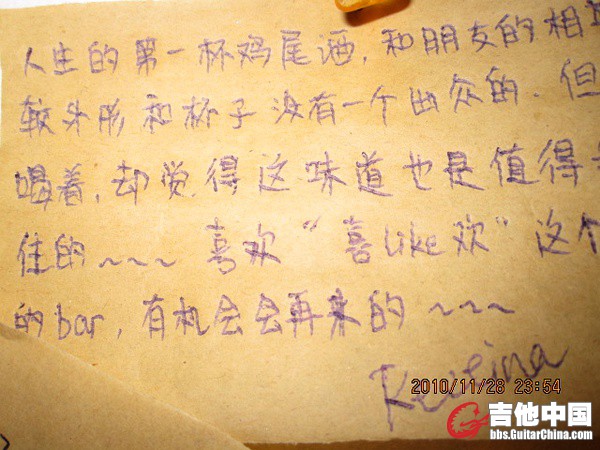 人生的第一杯鸡尾酒，和朋友的相
较外形和杯子没有一个出众的．但
喝着，却觉得这味道也是值得
住的~~~ 喜欢“喜like欢”这个
的bar，有机会会再来的~~~
2010/11/28 23:54
吉他中国
bbs.GuitarChina.com